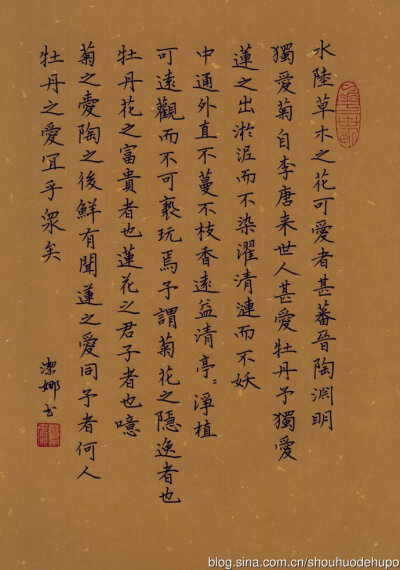 水陸草木之花可愛者甚蕃晉陶淵明
獨愛菊自李唐来世人甚愛牡丹予獨愛
蓮之出淤泥而不染濯清漣而不妖
中通外直不蔓不枝香遠益清亭〻淨植
可遠觀而不可褻玩焉予謂菊花之隱逸者也
牡丹花之富貴者也蓮花之君子者也噫
菊之愛陶之後鮮有聞蓮之愛同予者何人
牡丹之愛宜乎眾矣
潔娜书
blog.sina.com.cn/shouhuodehupo